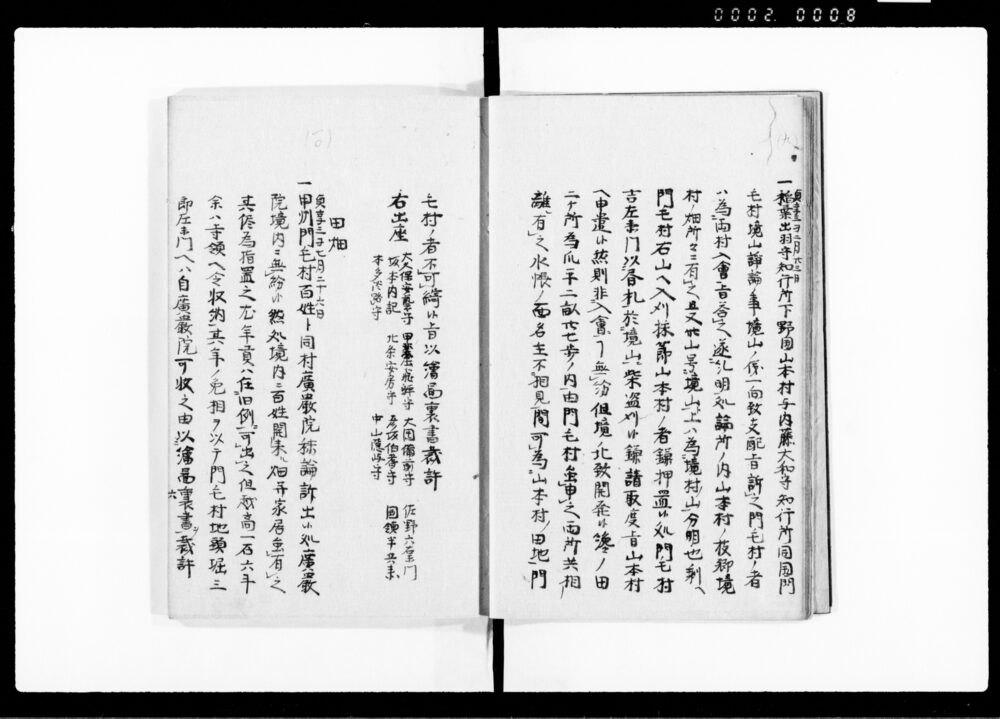 0002. 0008
(九)
貞享三年二月廿三日
一稲葉出羽守知行所下野国山本村与内藤大和守知行所同国門
毛村境山諍論之事境山ノ儀一向致支配之旨訴之門毛村ノ者
ハ為両村入會之旨答之遂糺明処論所ノ内山本村ノ枝郷境
村ノ畑所々ニ有之且又此山号境山上ハ為境村山分明也剰
門毛村右山へ入刈採節山本村ノ者鎌押置候処門毛村
吉左衛門以香札於境山柴盗刈候鎌請取度旨山本村
ヘ申遣候然則非入會事無紛但境ノ北致開発候纔ノ田
二ヶ所為爪二畝廿七歩ノ内由門毛村雖申之両所共相
離有之水帳ノ面名主不相見間可為山本村ノ田地門
毛村ノ者不可綺候旨以繪圖裏書裁許
右出座 大久保安藝守 甲斐庄飛騨守 大岡備前守 佐野六右衛門
坂本内記 北条安房守 彦坂伯耆守 國領半兵衛
本多淡路守 中山隠岐守
(一〇)
田畑
貞享三年七月二十六日
一甲州門毛村百姓ト同村廣嚴院秣論訴出候処廣嚴
院境内ニ無紛候然処境内ニ百姓開来畑并家居雖有之
其侭為指置之尤年貢ハ任旧例可出之但越高一石六斗
余ハ寺領へ令収納其年ノ免相ヲ以テ門毛村地頭堀三
郎左衛門へハ自廣嚴院可收之由以繪圖裏書裁許
六